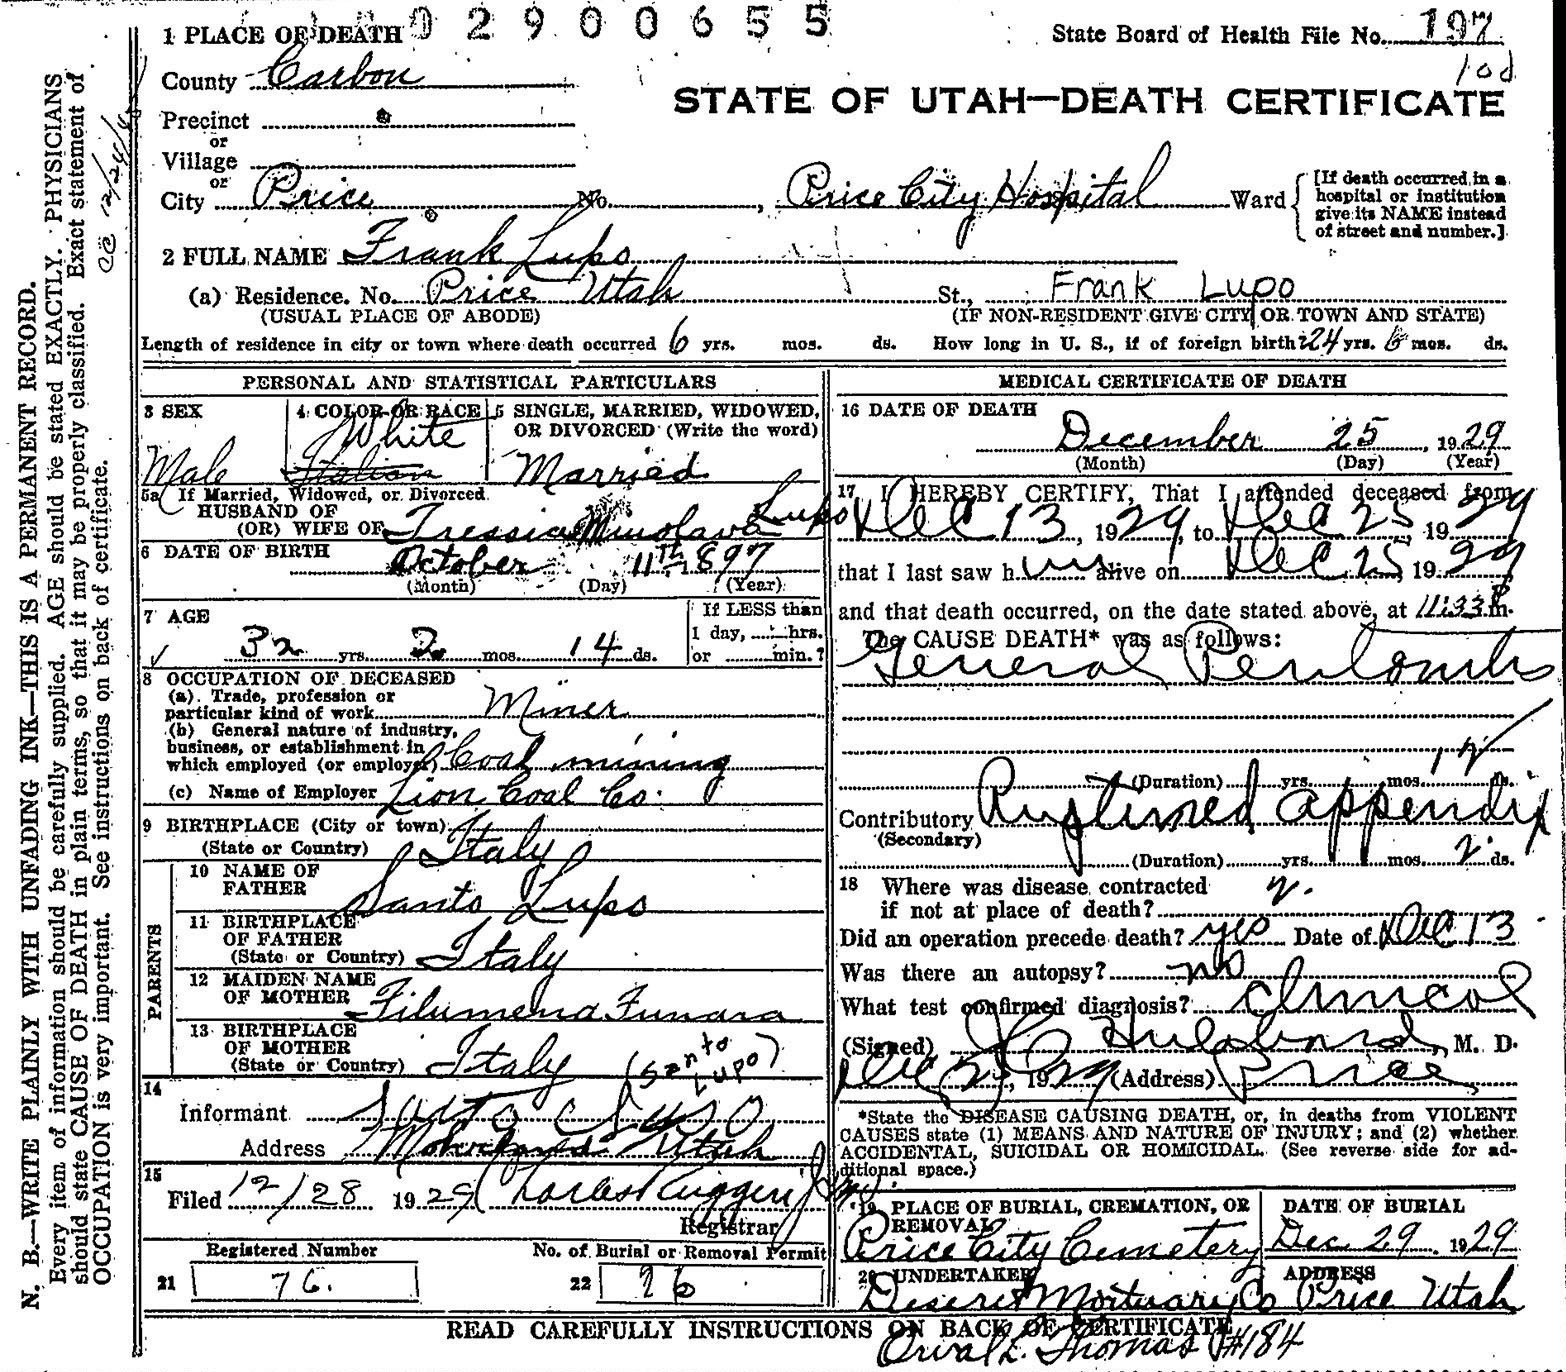 02900655
State Board of Health File No. 197
10d
1 PLACE OF DEATH
County Carbon
STATE OF UTAH—DEATH CERTIFICATE
Precinct
or
Village
or
City Price No. , Price City Hospital Ward
[If death occurred in a
hospital or institution
give its NAME instead
of street and number.]
2 FULL NAME Frank Lupo
(a) Residence. No. Price Utah St., Frank Lupo
(USUAL PLACE OF ABODE) (IF NON-RESIDENT GIVE CITY OR TOWN AND STATE)
Length of residence in city or town where death occurred 6 yrs. mos. ds. How long in U. S., if of foreign birth? 24 yrs. 6 mos. ds.
PERSONAL AND STATISTICAL PARTICULARS
3 SEX
Male
4 COLOR OR RACE
White
Italian
5 SINGLE, MARRIED, WIDOWED,
OR DIVORCED (Write the word)
Married
5a If Married, Widowed, or Divorced
HUSBAND OF
(OR) WIFE OF Tressia Lupo
6 DATE OF BIRTH
October 11th 1897
(Month) (Day) (Year)
7 AGE
32 yrs. 2 mos. 14 ds.
If LESS than
1 day, hrs.
or min.?
8 OCCUPATION OF DECEASED
(a) Trade, profession or
particular kind of work Miner
(b) General nature of industry,
business, or establishment in
which employed (or employer) Coal mining
(c) Name of Employer Lion Coal Co.
9 BIRTHPLACE (City or town)
(State or Country) Italy
PARENTS
10 NAME OF
FATHER Santo Lupo
11 BIRTHPLACE
OF FATHER
(State or Country) Italy
12 MAIDEN NAME
OF MOTHER Filumena Funara
13 BIRTHPLACE
OF MOTHER
(State or Country) Italy
(Santo
Lupo)
14
Informant Santo Lupo
Address Utah
15
Filed 12/28 1929 Charles Ruggeri
Registrar
Registered Number
21 76.
No. of Burial or Removal Permit
22 76
MEDICAL CERTIFICATE OF DEATH
16 DATE OF DEATH
December 25, 1929
(Month) (Day) (Year)
17 I HEREBY CERTIFY, That I attended deceased from
Dec 13, 1929, to Dec 25, 1929
that I last saw him alive on Dec 25, 1929
and that death occurred, on the date stated above, at 11:33 P m.
The CAUSE DEATH* was as follows:
General Peritonitis
(Duration) yrs. mos. 12 ds.
Contributory Ruptured appendix
(Secondary)
(Duration) yrs. mos. 2 ds.
18 Where was disease contracted
if not at place of death?
Did an operation precede death? yes Date of Dec 13
Was there an autopsy? no
What test confirmed diagnosis? clinical
(Signed) Hubbard, M. D.
Dec 25, 1929 (Address) Price
*State the DISEASE CAUSING DEATH, or, in deaths from VIOLENT
CAUSES state (1) MEANS AND NATURE OF INJURY; and (2) whether
ACCIDENTAL, SUICIDAL OR HOMICIDAL. (See reverse side for ad-
ditional space.)
19 PLACE OF BURIAL, CREMATION, OR
REMOVAL
Price City Cemetery
DATE OF BURIAL
Dec. 29 1929
20 UNDERTAKER
Deseret Mortuary Co
ADDRESS
Price Utah
READ CAREFULLY INSTRUCTIONS ON BACK OF CERTIFICATE
Orval L. Thomas #184
N. B.—WRITE PLAINLY WITH UNFADING INK—THIS IS A PERMANENT RECORD.
Every item of information should be carefully supplied. AGE should be stated EXACTLY. PHYSICIANS
should state CAUSE OF DEATH in plain terms, so that it may be properly classified. Exact statement of
OCCUPATION is very important. See instructions on back of certificate.